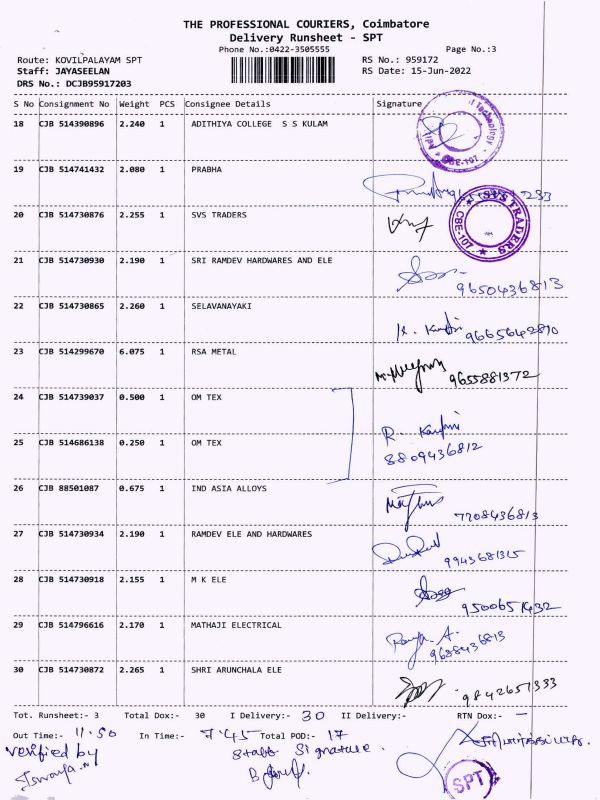 THE PROFESSIONAL COURIERS, Coimbatore
Delivery Runsheet - SPT
Phone No.:0422-3505555
Page No.:3
Route: KOVILPALAYAM SPT
RS No.: 959172
Staff: JAYASEELAN
RS Date: 15-Jun-2022
DRS No.: DCJB95917203
S No Consignment No Weight PCS Consignee Details Signature
18 CJB 514390896 2.240 1 ADITHIYA COLLEGE S S KULAM
CBE-107
19 CJB 514741432 2.080 1 PRABHA
20 CJB 514730876 2.255 1 SVS TRADERS
SVS TRADERS
CBE-107
21 CJB 514730930 2.190 1 SRI RAMDEV HARDWARES AND ELE
9650436813
22 CJB 514730865 2.260 1 SELAVANAYAKI
9665642810
23 CJB 514299670 6.075 1 RSA METAL
9655881372
24 CJB 514739037 0.500 1 OM TEX
25 CJB 514686138 0.250 1 OM TEX
8809436812
26 CJB 88501087 0.675 1 IND ASIA ALLOYS
7208436813
27 CJB 514730934 2.190 1 RAMDEV ELE AND HARDWARES
9943681315
28 CJB 514730918 2.155 1 M K ELE
9500651432
29 CJB 514796616 2.170 1 MATHAJI ELECTRICAL
9638436813
30 CJB 514730872 2.265 1 SHRI ARUNCHALA ELE
9842657333
Tot. Runsheet:- 3 Total Dox:- 30 I Delivery:- 30 II Delivery:- RTN Dox:- —
Out Time:- 11.50 In Time:- 7.45 Total POD:- 17
Verified by
Staff Signature.
SPT